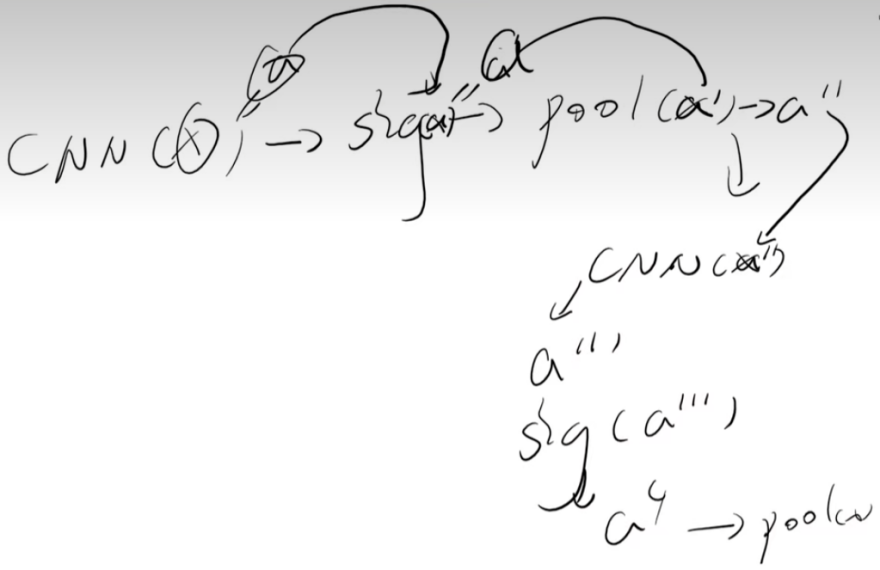 a a'
CNN(x) → sig(a) → pool(a') → a''
CNN(a'')
a'''
sig(a''')
a4 → pool